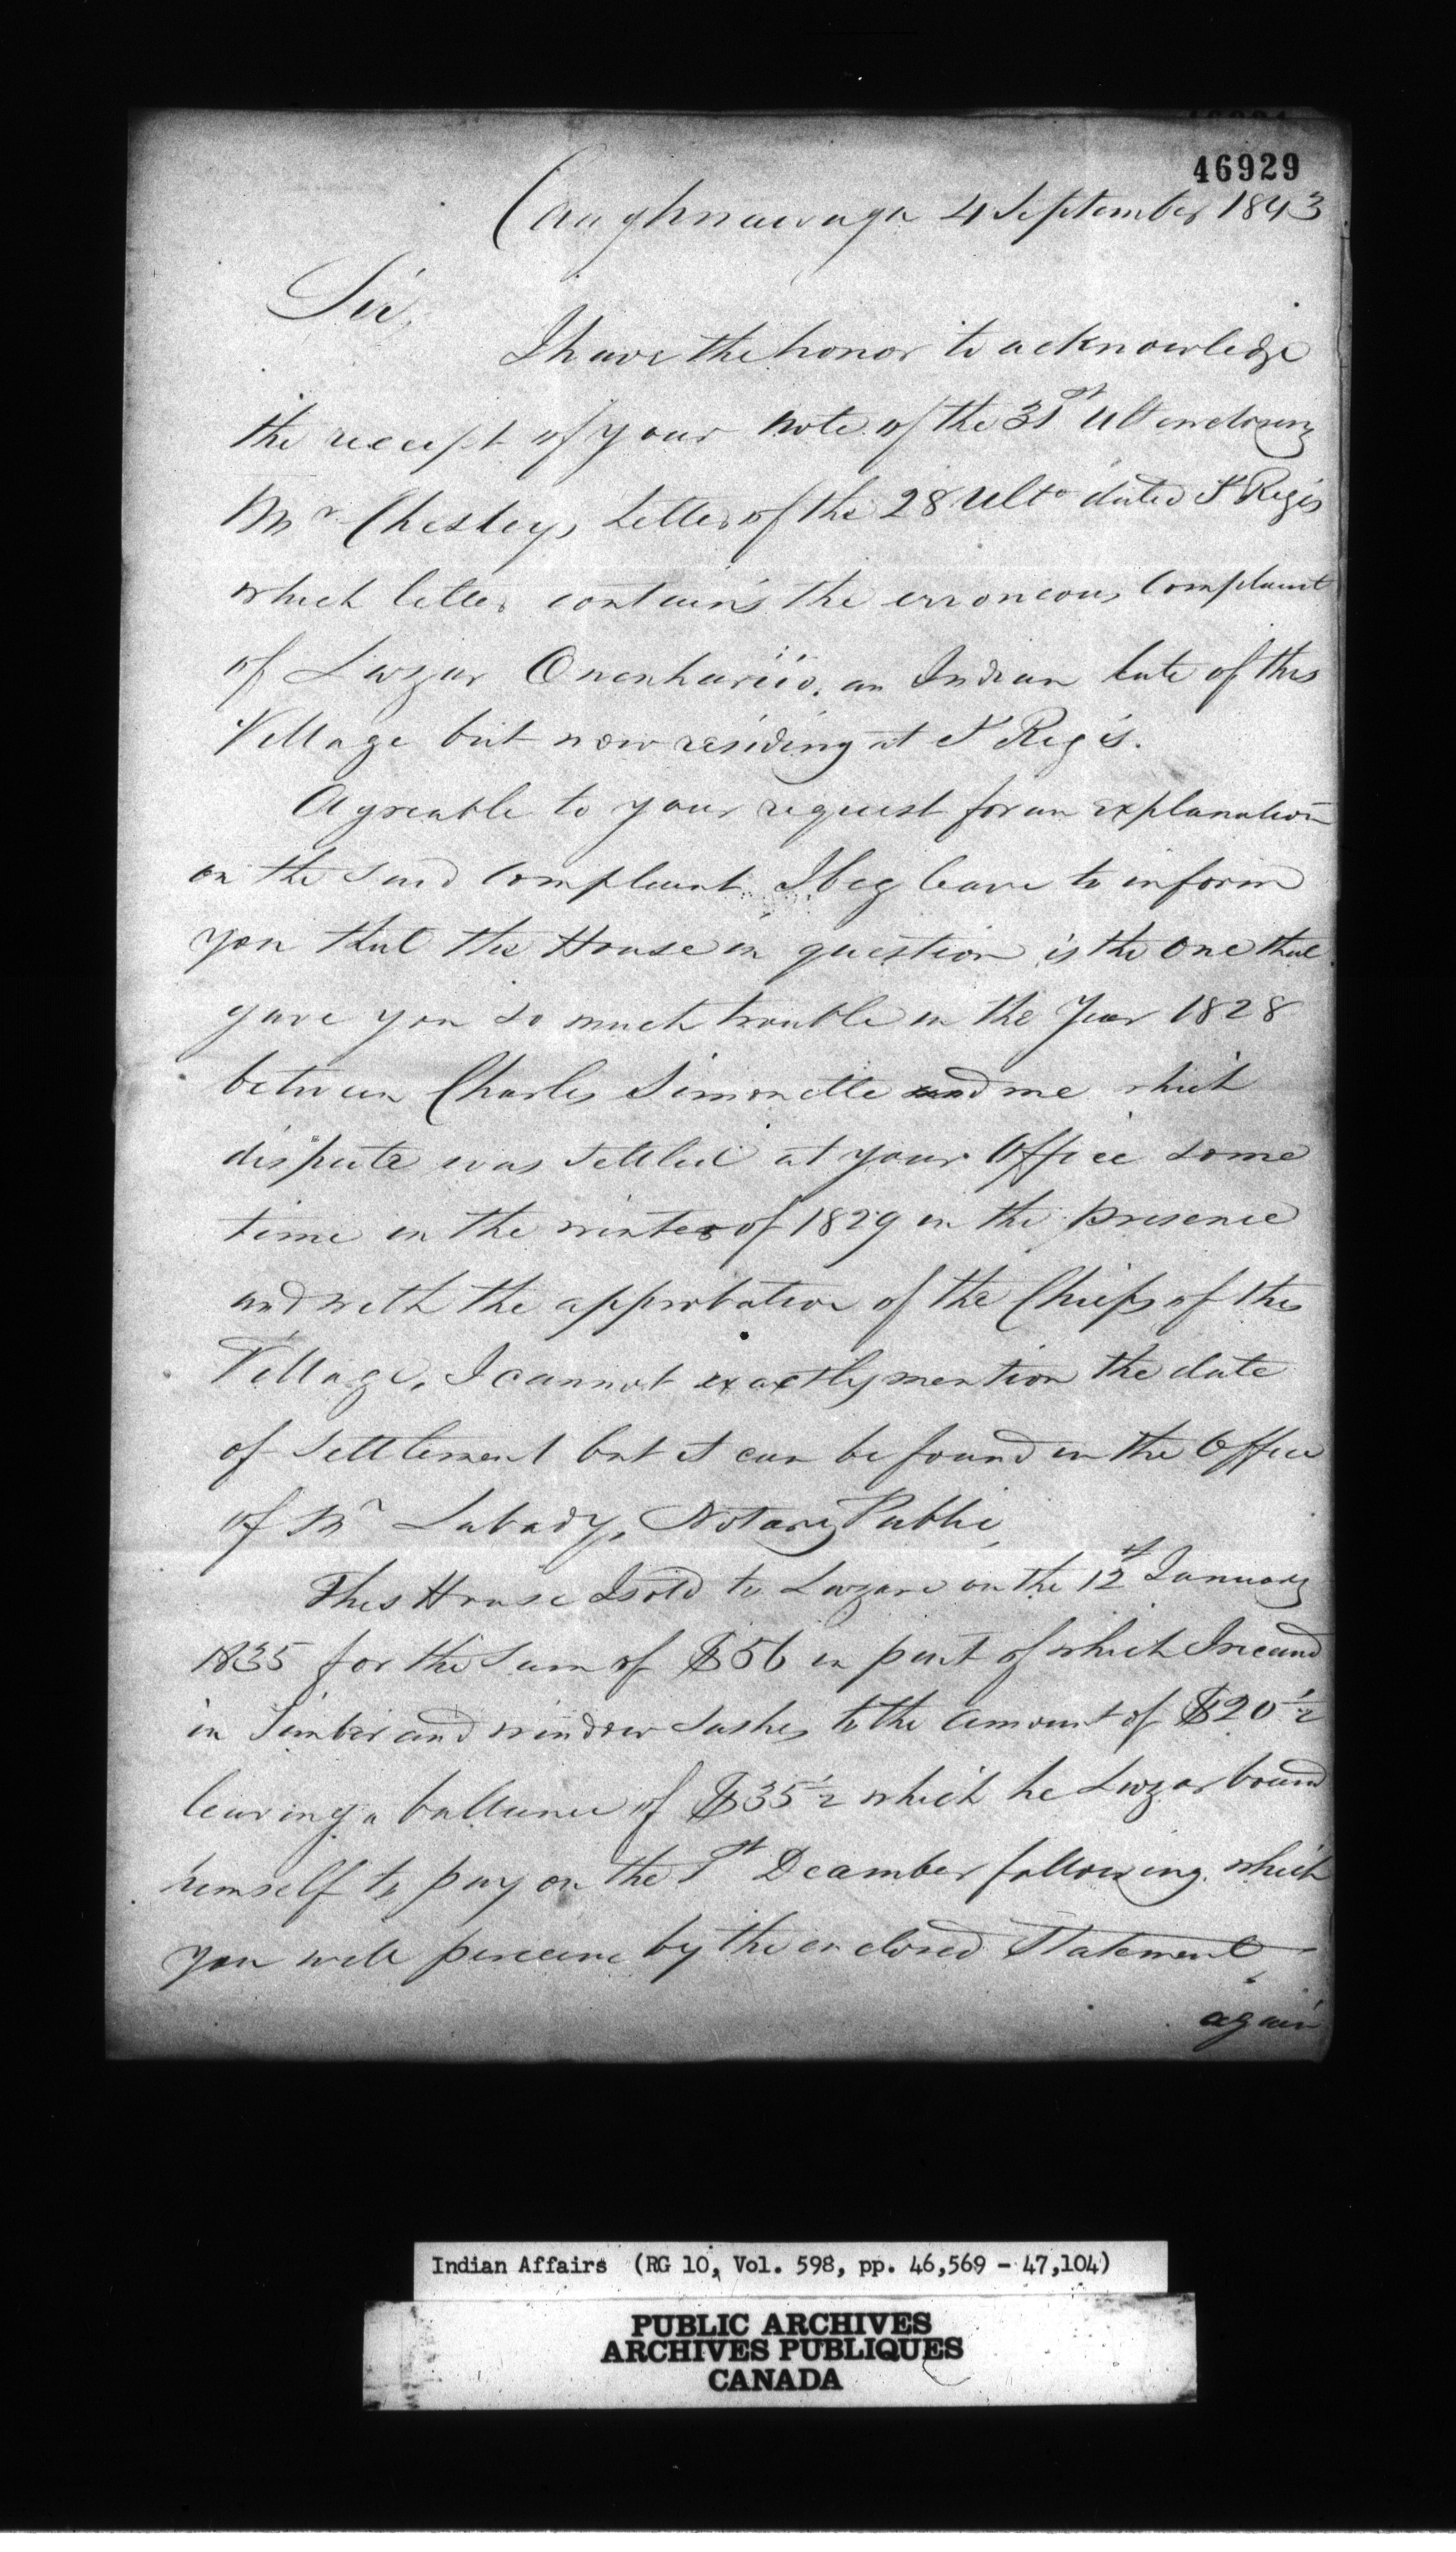 46929
Caughnawaga 4 September 1843
Sir,
I have the honor to acknowledge
the receipt of your note of the 31st Ult enclosing
Mr Chesleys Letter of the 28 Ulto dated St Regis
which letter contains the erroneous Complaint
of Lazar Onenhariio, an Indian late of this
Village but now residing at St Regis.
Agreable to your request for an explanation
on the said Complaint I beg leave to inform
you that the House in question is the one that
gave you so much trouble in the Year 1828
between Charles Simonette and me which
dispute was settled at your Office some
time in the winter of 1829 in the presence
and with the approbation of the Chiefs of this
Village, I cannot exactly mention the date
of Settlement but it can be found in the Office
of Mr Labady, Notary Public,
This House I sold to Lazare on the 12th January
1835 for the Sum of $56 in part of which I receivd
in Timber and window Sashes to the amount of $20 1/2
leaving a ballance of $35 1/2 which he Lazar bound
himself to pay on the 1st Decamber following. which
you will perceive by the enclosed Statement,
again
Indian Affairs (RG 10, Vol. 598, pp. 46,569 - 47,104)
PUBLIC ARCHIVES
ARCHIVES PUBLIQUES
CANADA